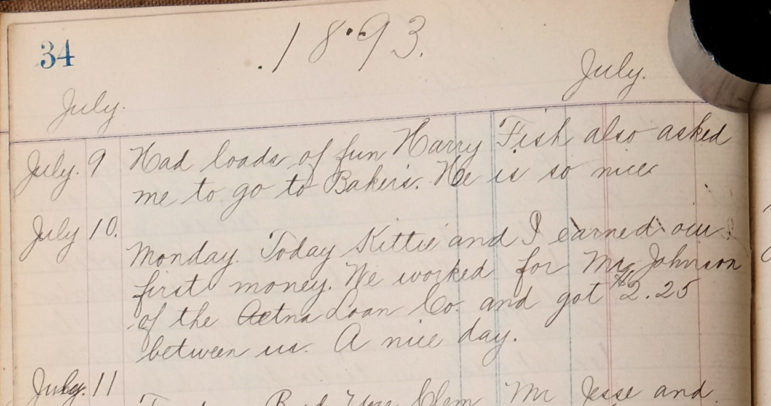 34
1893.
July.
July.
July. 9 Had loads of fun Harry Fish also asked
me to go to Bakers. He is so nice
July 10.
Monday. Today Kittie and I earned our
first money. We worked for Mr Johnson
of the Aetna Loan Co. and got $2.25
between us. A nice day.
July. 11 Mr Jesse and